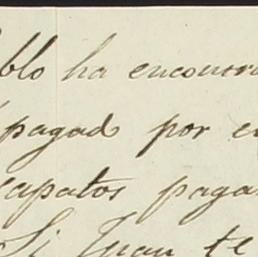 blo ha encontra
pagad por e
zapatos paga
Si Juan te